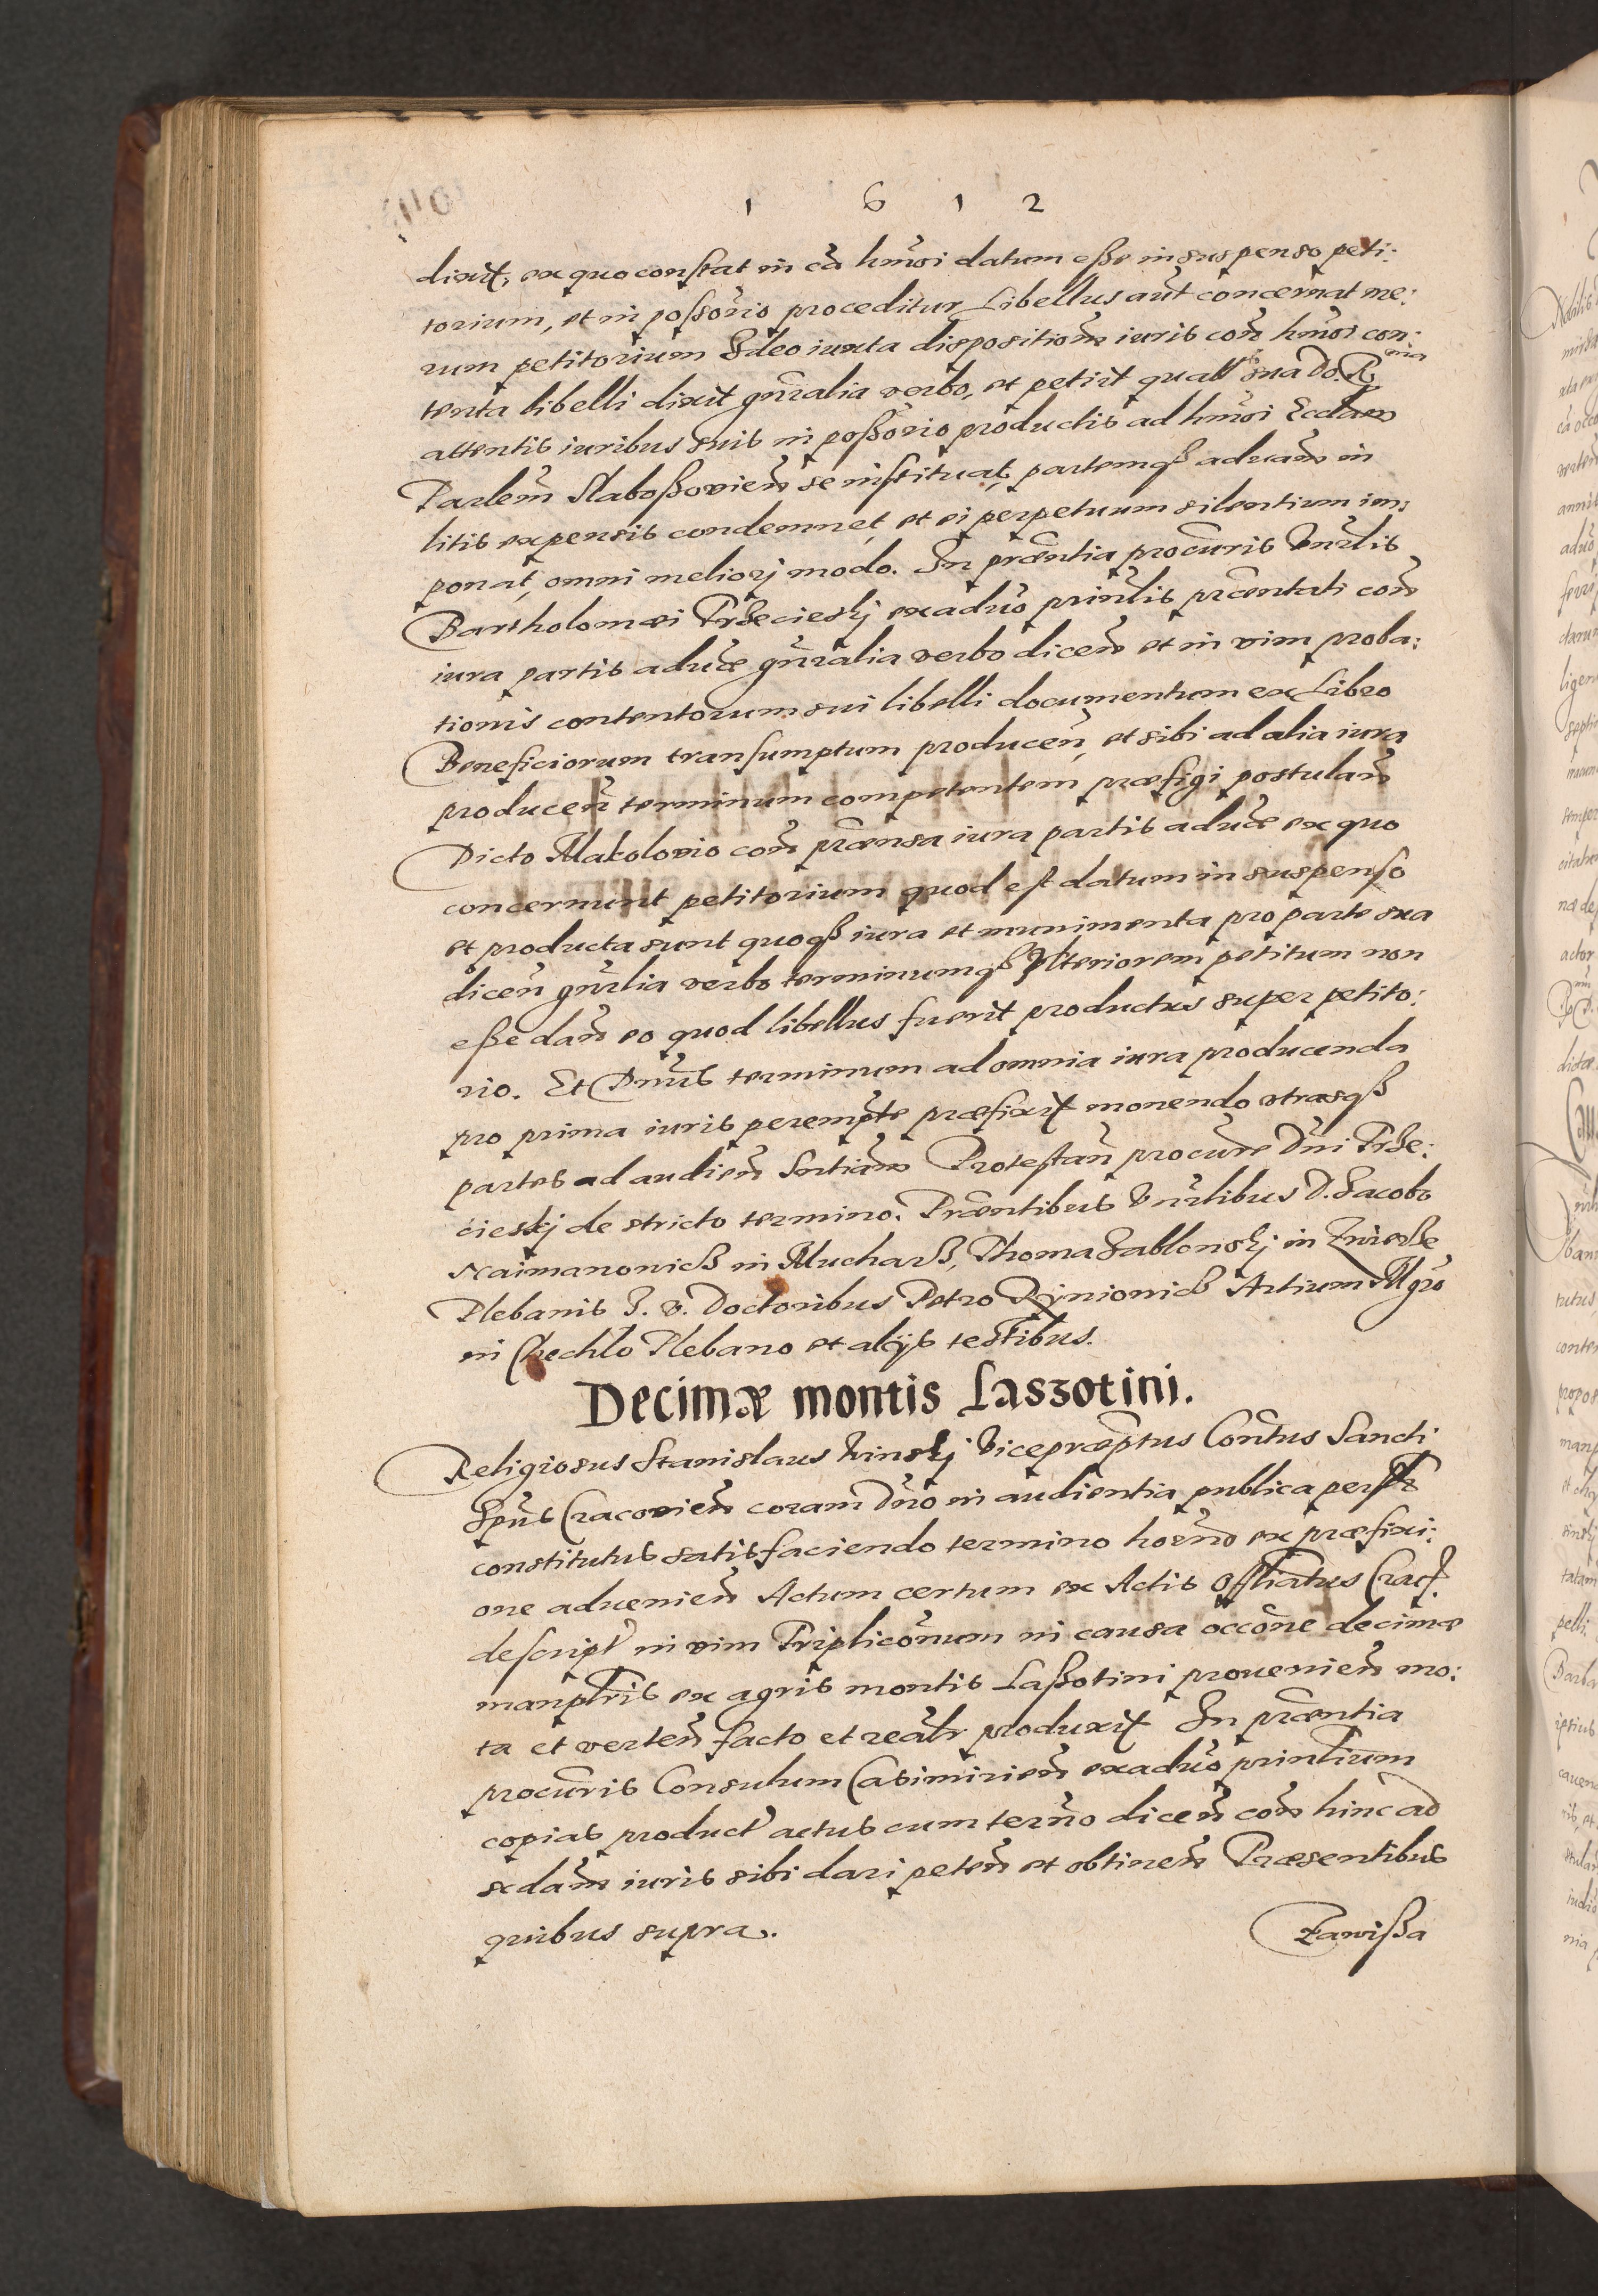 1 6 1 2
dixit, ex quo constat in cã hmõi datum esse in suspenso peti:
torium, et in possorio proceditur Libellus aut concernat me:
rum petitorium Ideo iuxta dispositionẽ iuris con̄ hmõi con:
tenta libelli dixit gnralia verbo, et petiit quatt sua Do. R ma
attentis iuribus suis in possorio productis ad hmõi Ecclam
Parlem Slaboszovien̄ se instituat, partemqȝ aduam in
litis expensis condemnet, et ei perpetuum silentium im:
ponat, omni meliorj modo. In prñtia procuris Vnrlis
Bartholomæi Trzecieskj ex aduo prinlis prñtati con̄
iura partis aduæ gnralia verbo dicen̄ et in vim proba:
tionis contentorum sui libelli documentum ex Libro
Beneficiorum transumptum producen̄, et sibi ad alia iura
producen̄ terminum competentem præfigi postulan̄
Dicto Makolovio con̄ prænsa iura partis aduæ ex quo
concernunt petitorium quod est datum in suspenso
et producta sunt quoqȝ iura et munimenta pro parte sua
dicen̄ gnrlia verbo terminumqȝ Vlteriorem petitum non
esse dan̄ eo quod libellus fuerit productus super petito:
rio. Et Dnus terminum ad omnia iura producenda
pro prima iuris perempte præfixit monendo vtrasqȝ
partes ad audien̄ Sntiam Protestan̄ procure Dni Trze:
cieskj de stricto termino. Prñtibus Vnrlibus D. Jacobo
Naimanowicz in Mucharz, Thoma Jablonskj in Zwierze
Plebanis I. V. Doctoribus Petro Rynionicz Artium Mgro
in Chechlo Plebano et alijs testibus.
Decimæ montis Laszotini.
Religiosus Stanislaus Kinskj Vicepræptus Contus Sancti
Spũs Cracovien̄ coram Dno in audientia publica persr
constitutus satisfaciendo termino hoerno ex præfixi:
one aduenien̄ Actum certum ex Actis Offliatus Crac.
descript in vim Triplicõnum in causa occõne decimæ
maniplris ex agris montis Laszotini prouenien̄ mo:
ta et verten̄ facto et realr produxit In prñtia
procuris Consulum Casimirien̄ ex aduo prinlium
copias product actus cum terno dicen̄ con̄ hinc ad
sc dam iuris sibi dari peten̄ et obtinen̄ Præsentibus
quibus supra.
Zawisza